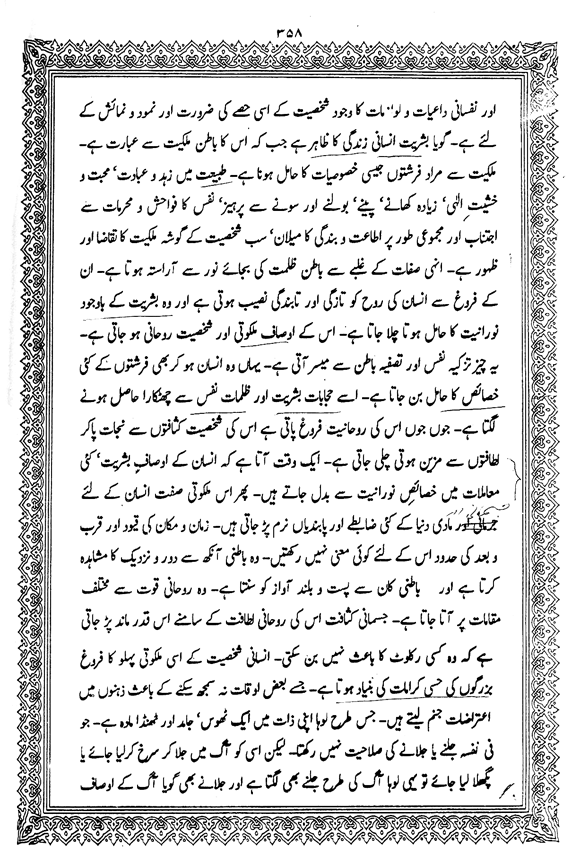 ۳۵۸
اور نفسانی داعیات و لو مات کا وجود شخصیت کے اسی حصے کی ضرورت اور نمود و نمائش کے
لئے ہے۔ گویا بشریت انسانی زندگی کا ظاہر ہے جب کہ اس کا باطن ملکیت سے عبارت ہے۔
ملکیت سے مراد فرشتوں جیسی خصوصیات کا حامل ہونا ہے۔ طبیعت میں زہد و عبادت، محبت و
خشیت الٰہی، زیادہ کھانے، پینے، بولنے اور سونے سے پرہیز، نفس کا فواحش و محرمات سے
اجتناب اور مجموعی طور پر اطاعت و بندگی کا میلان، سب شخصیت کے گوشہ ملکیت کا تقاضا اور
ظہور ہے۔ انہی صفات کے غلبے سے باطن ظلمت کی بجائے نور سے آراستہ ہوتا ہے۔ ان
کے فروغ سے انسان کی روح کو تازگی اور تابندگی نصیب ہوتی ہے اور وہ بشریت کے باوجود
نورانیت کا حامل ہوتا چلا جاتا ہے۔ اس کے اوصاف ملکوتی اور شخصیت روحانی ہو جاتی ہے۔
یہ چیز تزکیہ نفس اور تصفیہ باطن سے میسر آتی ہے۔ یہاں وہ انسان ہو کر بھی فرشتوں کے کئی
خصائص کا حامل بن جاتا ہے۔ اسے حجابات بشریت اور ظلمات نفس سے چھٹکارا حاصل ہونے
لگتا ہے۔ جوں جوں اس کی روحانیت فروغ پاتی ہے اس کی شخصیت کثافتوں سے نجات پا کر
لطافتوں سے مزین ہوتی چلی جاتی ہے۔ ایک وقت آتا ہے کہ انسان کے اوصافِ بشریت، کئی
معاملات میں خصائصِ نورانیت سے بدل جاتے ہیں۔ پھر اس ملکوتی صفت انسان کے لئے
مادی دنیا کے کئی ضابطے اور پابندیاں نرم پڑ جاتی ہیں۔ زمان و مکان کی قیود اور قرب
و بعد کی حدود اس کے لئے کوئی معنی نہیں رکھتیں۔ وہ باطنی آنکھ سے دور و نزدیک کا مشاہدہ
کرتا ہے اور باطنی کان سے پست و بلند آواز کو سنتا ہے۔ وہ روحانی قوت سے مختلف
مقامات پر آتا جاتا ہے۔ جسمانی کثافت اس کی روحانی لطافت کے سامنے اس قدر ماند پڑ جاتی
ہے کہ وہ کسی رکاوٹ کا باعث نہیں بن سکتی۔ انسانی شخصیت کے اسی ملکوتی پہلو کا فروغ
بزرگوں کی حسی کرامات کی بنیاد ہوتا ہے۔ جسے بعض اوقات نہ سمجھ سکنے کے باعث ذہنوں میں
اعتراضات جنم لیتے ہیں۔ جس طرح لوہا اپنی ذات میں ایک ٹھوس، جامد اور ٹھنڈا مادہ ہے۔ جو
فی نفسہ جلنے یا جلانے کی صلاحیت نہیں رکھتا۔ لیکن اسی کو آگ میں جلا کر سرخ کر لیا جائے یا
پگھلا لیا جائے تو یہی لوہا آگ کی طرح جلنے بھی لگتا ہے اور جلانے بھی گویا آگ کے اوصاف